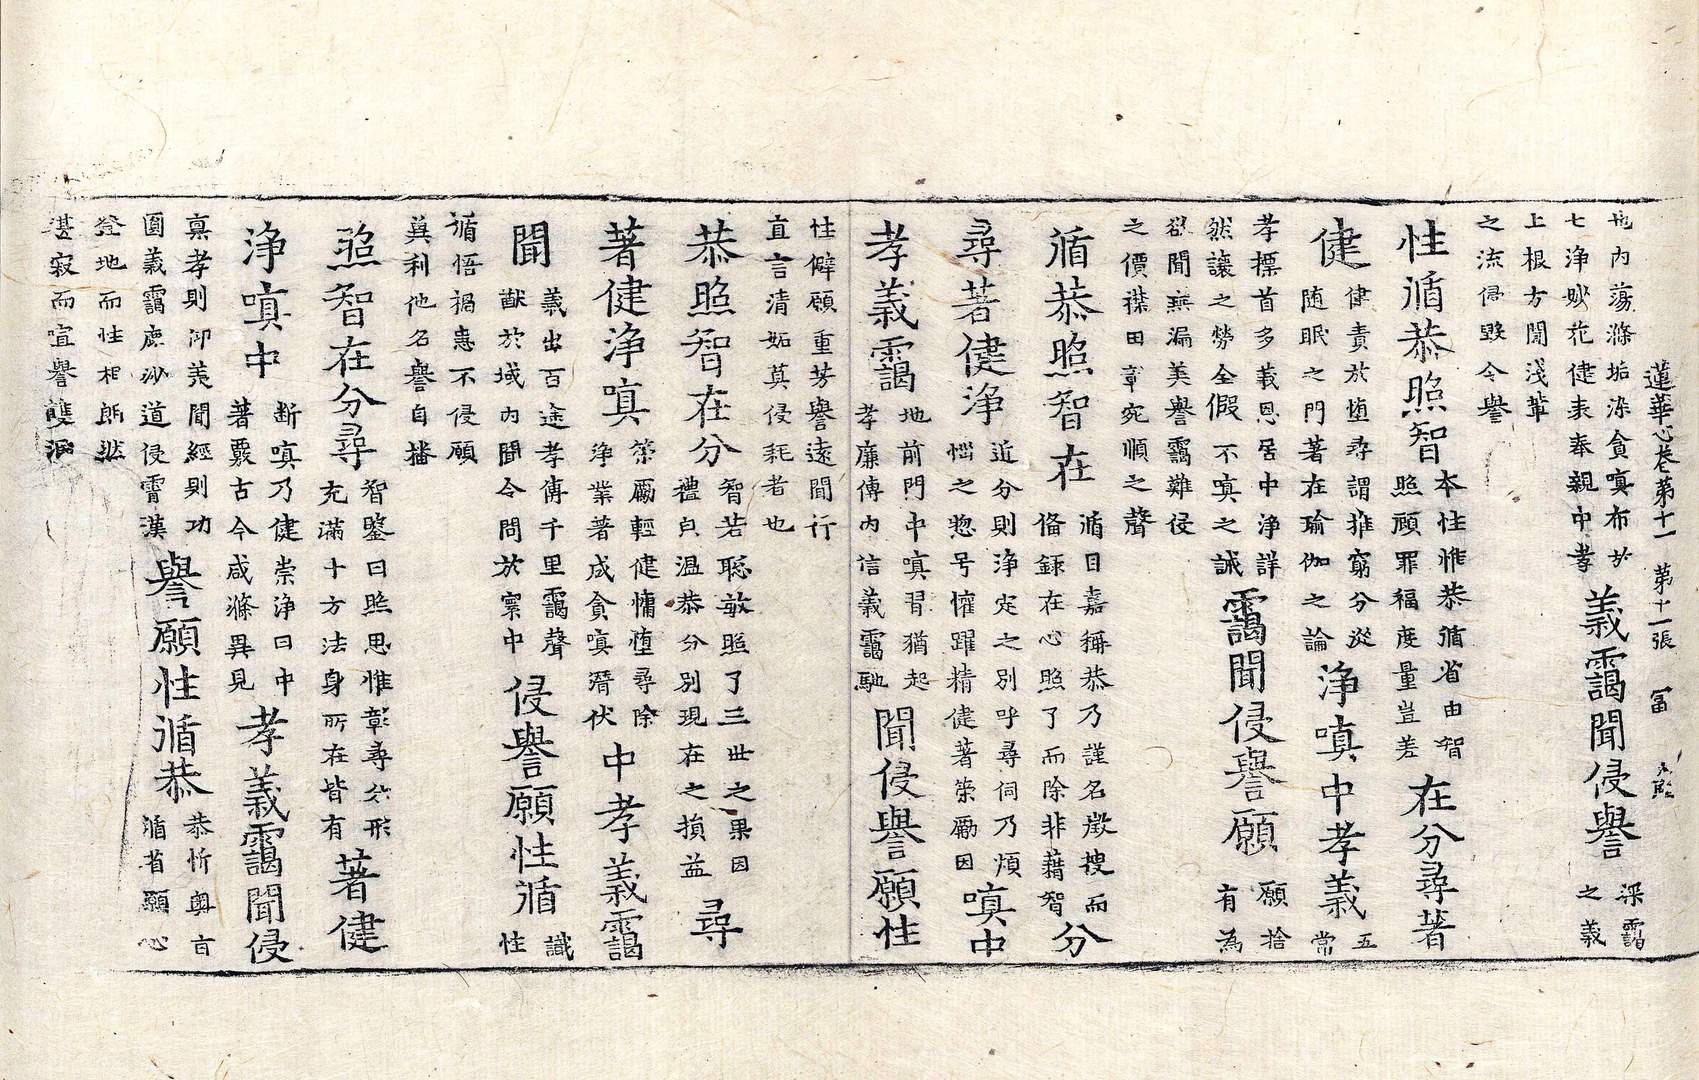 蓮華心巻第十一　第十一張　冨
也内蕩滌垢染貪嗔布於
七浄妙花健表奉親中孝
義靄聞侵譽
深靄
之義
上根方聞淺輩
之流得毀令譽
性循恭照智
本性惟恭循省由智
照顧罪福度量豈差
在分尋著
健
健責於堕尋謂推窮分從
随眠之門著在瑜伽之論
浄嗔中孝義
五
常
孝標首多義恩居中浄詳
然讓之勞全假不嗔之誡
靄聞侵譽願
願捨
有為
欲聞無漏美譽靄難侵
之價襟田章宛順之聲
循恭照智在
循日嘉稱恭乃謹名徴搜而
備録在心照了而除非藉智
分
尋著健浄
近分則浄定之別呼尋伺乃煩
惱之惣号懽躍精健著策勵因
嗔中
孝義靄
地前門中嗔習猶起
孝廉傳内信義靄馳
聞侵譽願性
性僻願重芳譽遠聞行
直言清妬莫侵耗者也
恭照智在分
智若聡敏照了三世之果因
禮貞温恭分別現在之損益
尋
著健浄嗔
策勵輕健慵堕尋除
浄業著成貪嗔潜伏
中孝義靄
聞
義出百途孝傳千里靄聲
猷於域内聞令問於寰中
侵譽願性循
識
性
循悟禍悳不侵願
兾利他名譽自播
照智在分尋
智鑒曰照思惟彰尋分形
充滿十方法身所在皆有
著健
浄嗔中
斷嗔乃健崇浄曰中
著覈古今咸滌異見
孝義靄聞侵
稟孝則仰羙聞經則功
圓義靄塵沙道侵霄漢
譽願性循恭
恭忻奥旨
循省願心
登地而性相朗然
湛寂而宣譽雙泯